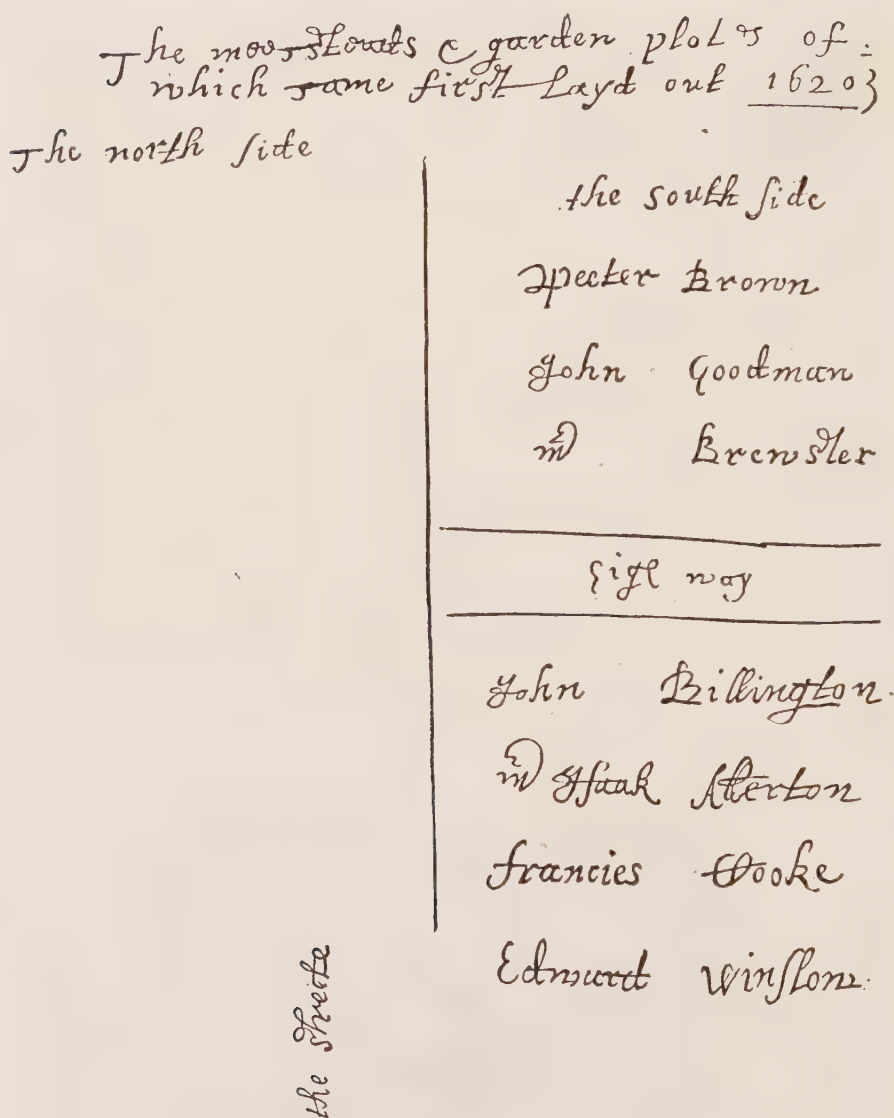 The meersteads & garden plotes of
which came first layd out 1620
The north side
the south side
Peeter Brown
John Goodman
mr Brewster
high way
John Billington
mr Isaak Allerton
francies Cooke
Edward Winslow
the streete